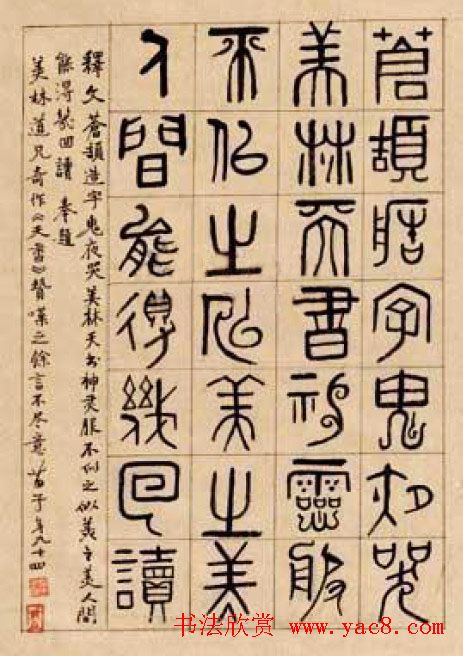 蒼頡造字鬼夜哭
美林天書神靈服
不似之似美之美
人間能得幾回讀
釋文蒼頡造字鬼夜哭美林天书神灵服不似之似美之美人間
能得幾回讀 奉題
美林道兄奇作《天書》贊嘆之餘言不尽意 苗子年九十四
书法欣赏:www.yac8.com